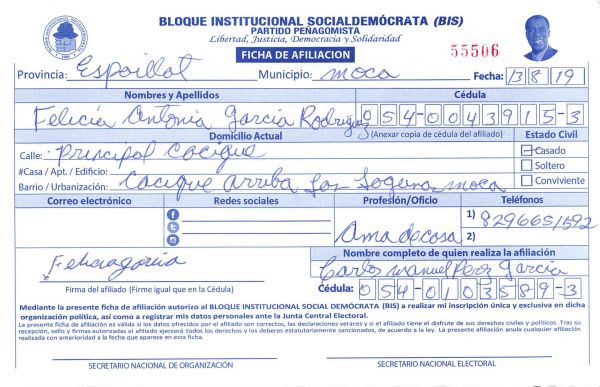 BLOQUE INSTITUCIONAL SOCIALDEMÓCRATA (BIS)
PARTIDO PEÑAGOMISTA
Libertad, Justicia, Democracia y Solidaridad
FICHA DE AFILIACION
55506
Provincia: Espaillat Municipio: moca Fecha: 13 8 19
Nombres y Apellidos Cédula
Felicia Antonia Garcia Rodriguez 054-0043915-3
Domicilio Actual (Anexar copia de cédula del afiliado) Estado Civil
Calle: principal Cacique Casado
#Casa / Apt. / Edificio: Soltero
Barrio / Urbanización: Cacique arriba moca Conviviente
Correo electrónico Redes sociales Profesión/Oficio Teléfonos
Ama de casa 1) 8296651592
2)
Felicia garcia
Firma del afiliado (Firme igual que en la Cédula)
Nombre completo de quien realiza la afiliación
Carlos manuel Perez Garcia
Cédula: 054-0103589-3
Mediante la presente ficha de afiliación autorizo al BLOQUE INSTITUCIONAL SOCIAL DEMÓCRATA (BIS) a realizar mi inscripción única y exclusiva en dicha
organización política, así como a registrar mis datos personales ante la Junta Central Electoral.
La presente ficha de afiliación es válida si los datos ofrecidos por el afiliado son correctos, las declaraciones veraces y si el afiliado tiene el disfrute de sus derechos civiles y políticos. Tras su
recepción, sello y firmas autorizadas el afiliado ejercerá todos los derechos y los deberes estatutariamente sancionados, de acuerdo a la ley. La presente afiliación anula cualquier afiliación
realizada con anterioridad a la fecha que aparece en esta ficha.
SECRETARIO NACIONAL DE ORGANIZACIÓN SECRETARIO NACIONAL ELECTORAL